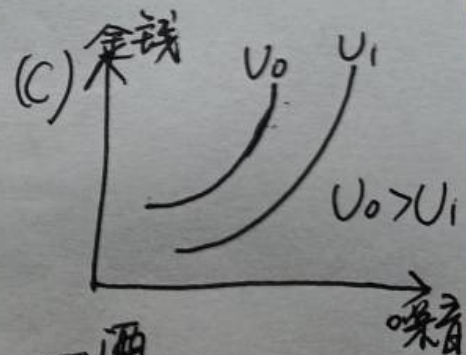 (C) 金钱
U₀ U₁
U₀>U₁
噪音
酒